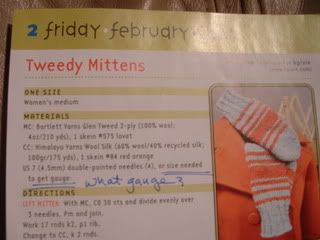 2 friday • february
Tweedy Mittens
ONE SIZE
Women's medium
MATERIALS
MC: Bartlett Yarns Glen Tweed 2-ply (100% wool;
4oz/210 yds), 1 skein #575 lovat
CC: Himalaya Yarns Wool Silk (60% wool/40% recycled silk;
100g/175 yds), 1 skein #84 red orange
US 7 (4.5mm) double-pointed needles (4), or size needed
to get gauge what gauge?
DIRECTIONS
LEFT MITTEN: With MC, CO 30 sts and divide evenly over
3 needles. Pm and join.
Work 17 rnds k2, p1 rib.
Change to CC, k 2 rnds.